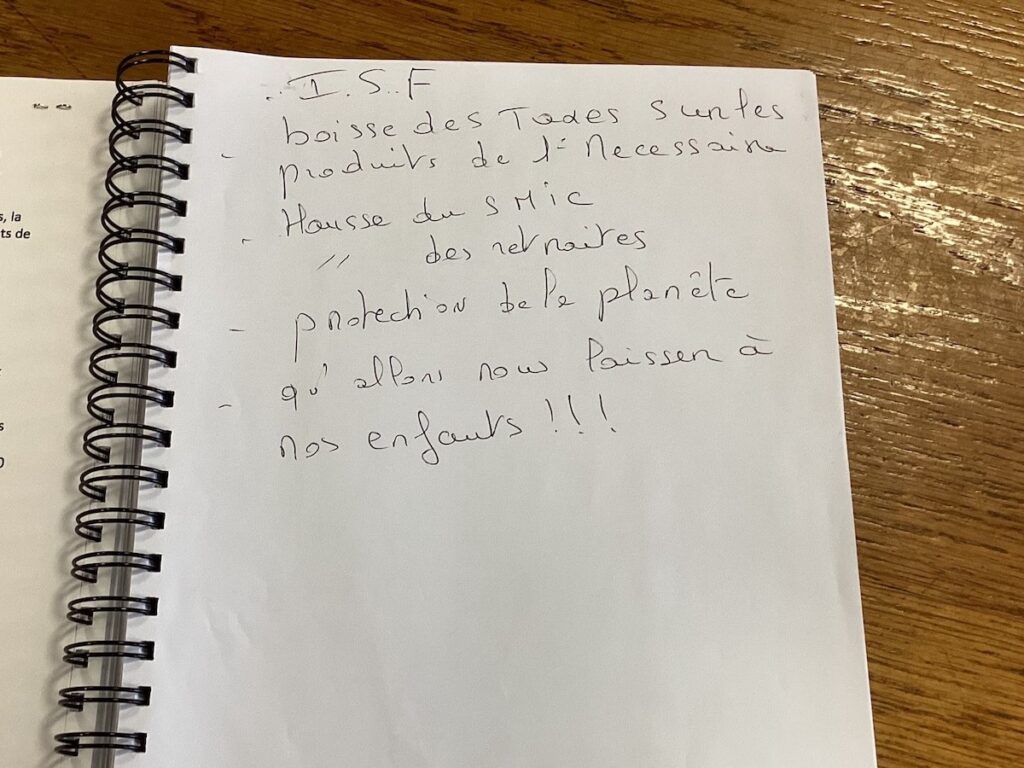 s, la
ts de
s
I.S.F
- baisse des Taxes sur les
produits de 1è Necessaire
- Hausse du SMic
" des retraites
- protection de la planête
- qu'allons nous laisser à
nos enfants !!!